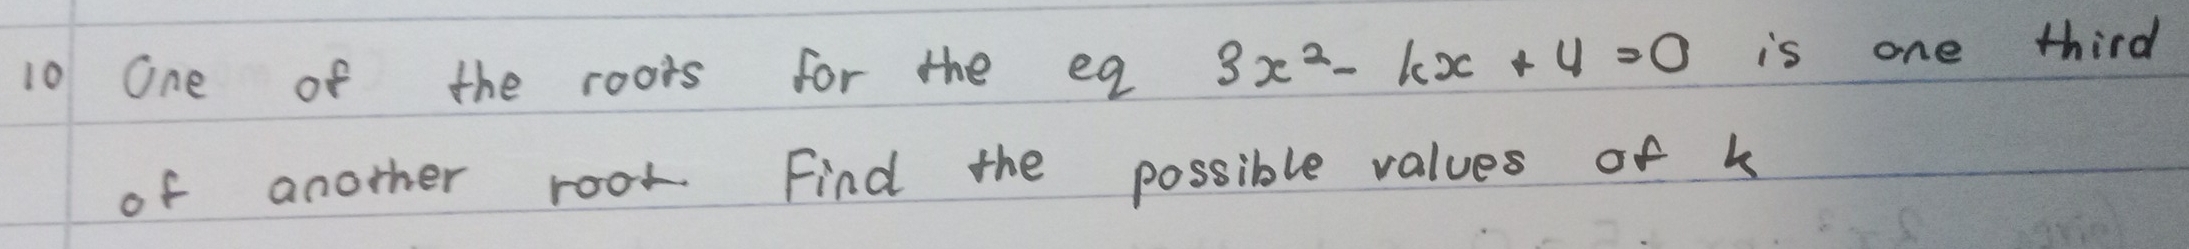 10 One of the roots for the eq 3x² - kx + 4 = 0 is one third
of another root Find the possible values of k